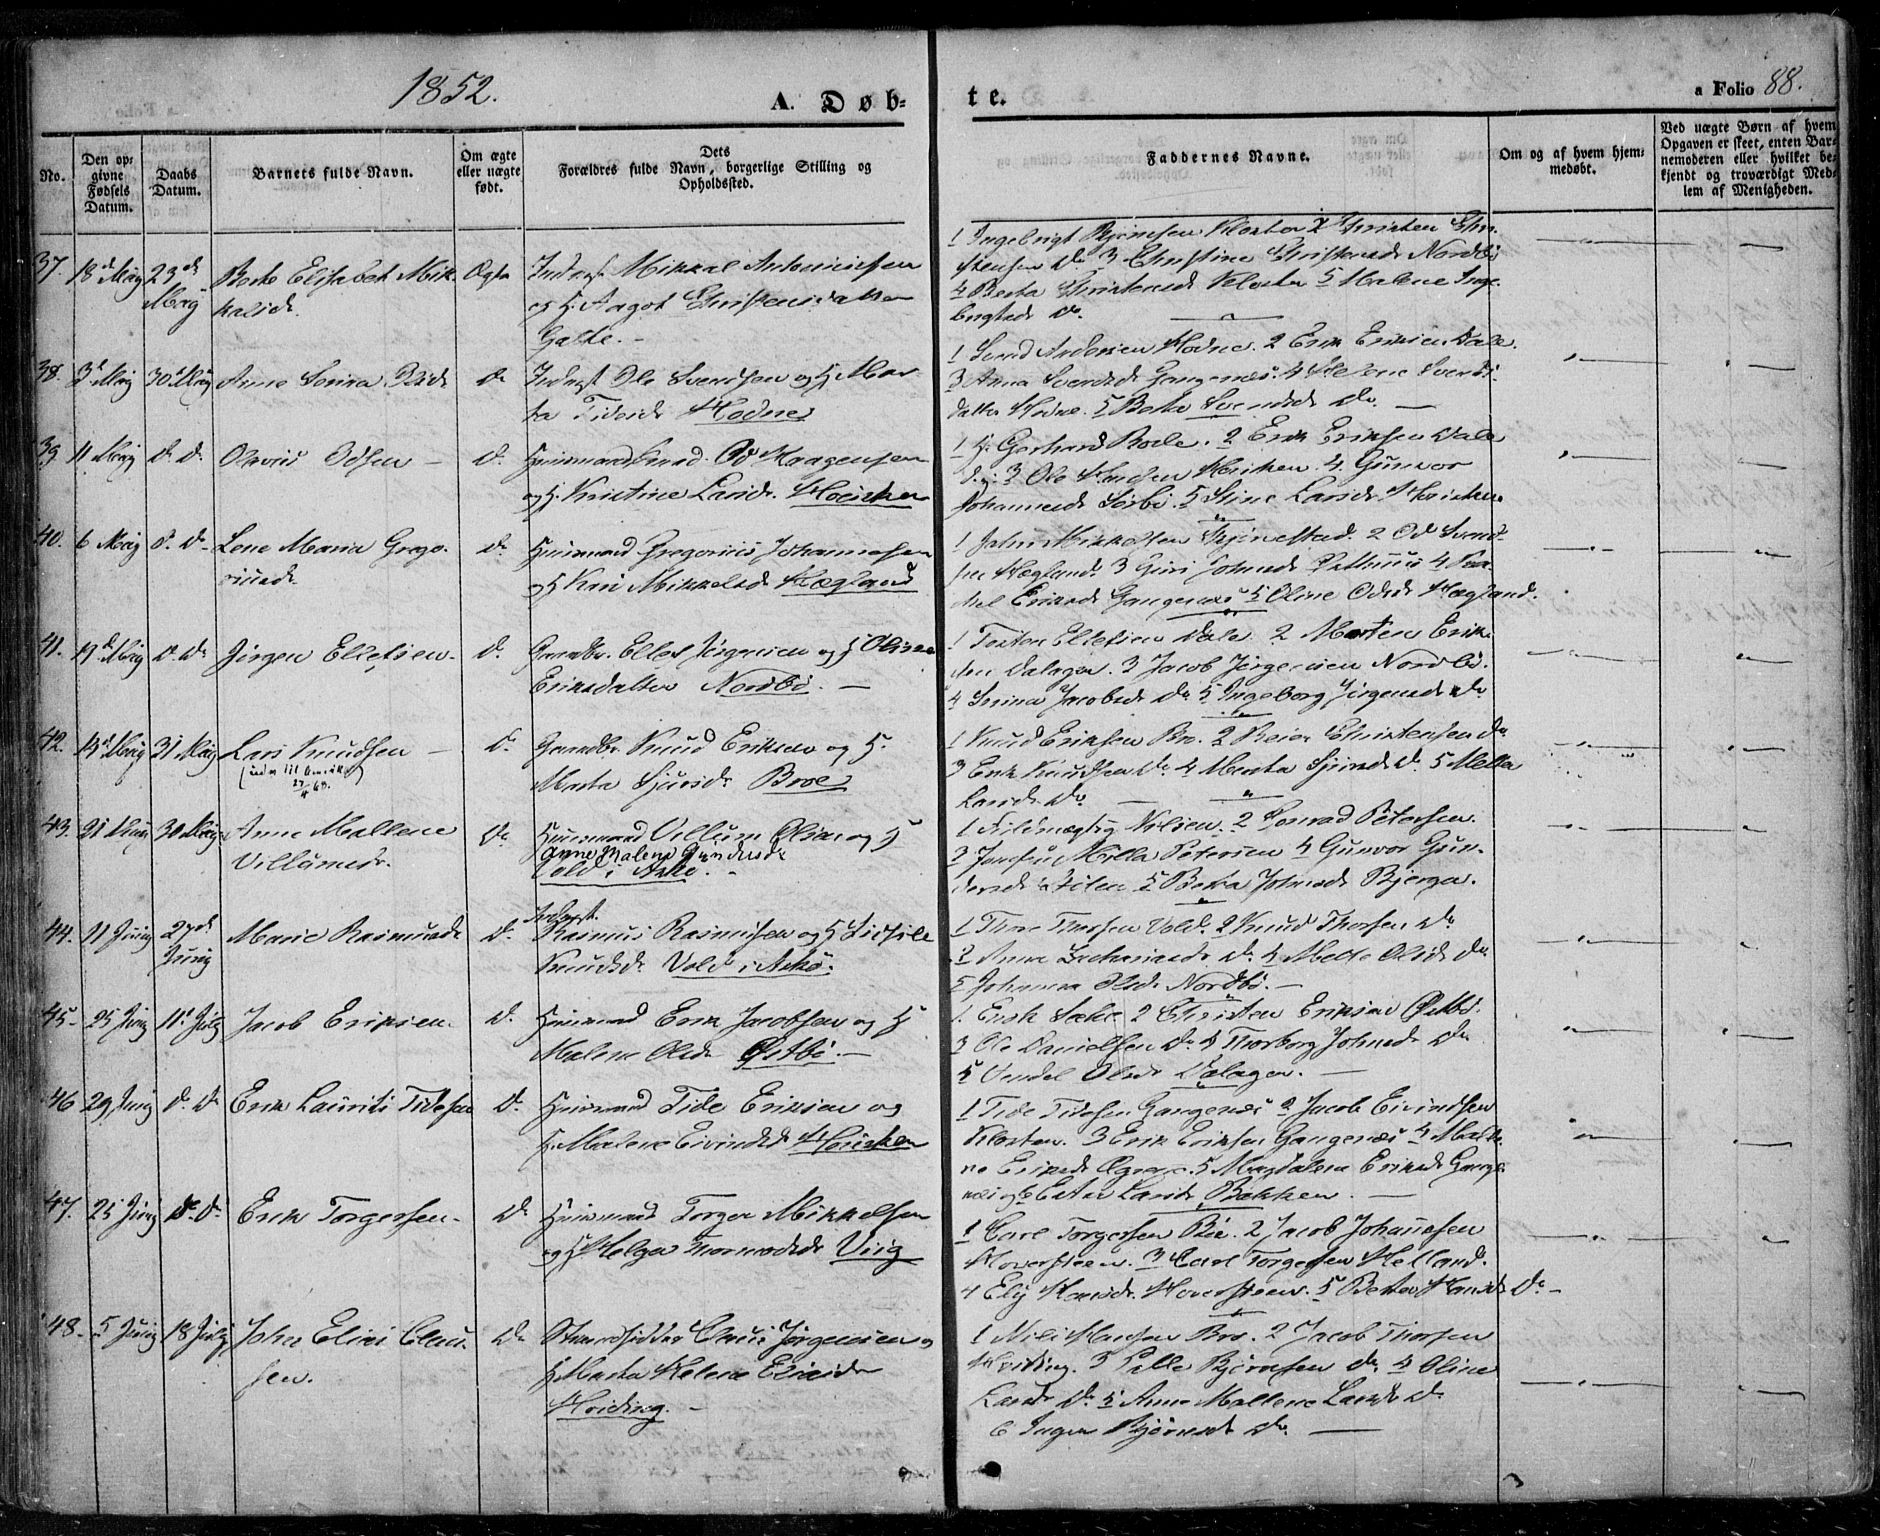 1852.
A. Døb-
te.
a Folio 88.
No.
Den op-
givne
Fødsels
Datum.
Daabs
Datum.
Barnets fulde Navn.
Om ægte
eller uægte
født.
Dets
Forældres fulde Navn, borgerlige Stilling og
Opholdssted.
Faddernes Navne.
Om og af hvem hjem-
medøbt.
Ved uægte Børn af hvem
Opgaven er skeet, enten Bar-
nemoderen eller hvilket be-
kjendt og troværdigt Med-
lem af Menigheden.
37. 18d Maj 23d Maj
Berte Elisabet Mik-
kalsd.
Ægte
Inderst Mikkal Antonius
og H. Aagot Christensdatter
Galte.
1 Ingebrigt Bjørnsen Kloster 2 Christen Chri-
stensen Do 3 Christine Christensd Nordbø
4 Berta Christensd Kloster 5 Malene Inge-
brigtsd Do.
38. 3d Maj 30d Maj
Anne Serina Olsd
Do
Inderst Ole Svendsen og H. Mar-
ta Tidesd Hodne
1 Svend Andersen Hodne. 2 Erik Eriksen Dale.
3 Anna Svendsd Gangenæs. 4 Helene Svends-
datter Hodne. 5 Berta Svendsd Do.
39 11 Maj D. Do
Olavus Odsen
D.
Huusmand Od Haagensen
og H. Kristine Larsd. Hoisken
1 Hr Gerhard Bode. 2 Erik Eriksen Dale
3 Ole Hansen Hoisken. 4 Gunvor
Johannesd Sørbø. 5 Stine Larsd Hoisken
40. 6 Maj D. Do
Lene Maria Grego-
riusd.
Do
Huusmand Gregorius Johannesen
og H Kari Mikkelsd Hægland
1 John Mikkelsen Reinestad. 2 Od Svend-
sen Hægland. 3 Guri Johnsd 4 Ra-
chel Eriksd Gangenæs 5 Oline Odsd Hægland.
41. 19d Maj D. Do
Jørgen Ellefsen
D.
Gaardbr. Ellef Jørgensen og H Oline
Eriksdatter Nordbø.
1 Torsten Ellefsen Dale 2 Morten Erik-
sen Dalager. 3 Jacob Jørgensen Nordbø.
4 Serina Jacobsd Do 5 Ingeborg Jørgensd Do
42. 19d Maj 31 Maj
Lars Knudsen
D.
Gaardbr. Knud Eriksen og H.
Marta Sjursd. Broe
1 Knud Eriksen Bro. 2 Reier Christensen Do
3 Erik Knudsen Do 4 Marta Sjursd Do. 5 Mella
Larsd. Do.
43. 21 30 Maj
Anne Mallene
Villumsd.
Do
Huusmand Villum Olsen og H
Anne Malene Gundersd
Vold i Askø.
1 Fuldmægtig Nielsen. 2 Konrad Petersen.
3 Jomfru Milla Petersen 4 Gunvor Gun-
dersd 5 Berta Johnsd Bjerga.
44. 11 Juny 27d Juny
Marie Rasmusd
D.
Inderst.
Rasmus Rasmussen og H Sidsele
Knudsd. Vold i Askø.
1 Thore Thorsen Vold. 2 Knud Thorsen Do
3 Anna Zachariasd Do 4 Mette Olsd Do
5 Johanna Olsd. Nordbø.
45. 25 Juny 11d July
Jacob Eriksen
D.
Huusmand Erik Jacobsen og H
Malene Olsd Østbø.
1. Erik 2 Christen Eriksen Østbø.
3 Ole Danielsen Do 4 Thorborg Johnsd Do
5 Vendel Olsd Dalager.
46 29 Juny D. Do
Erik Laurits Tidesen
D.
Huusmand Tide Eriksen og
H. Malene Eivindsd Hoisken
1 Tide Tidesen Gangenæs 2 Jacob Eivindsen
Kloster. 3 Erik Eriksen Gangenæs 4 Mart-
ne Eriksd 5 Magdalena Eriksd Gange-
næs og 6 Ester Larsd Bakken.
47. 25 Juny D. Do
Erik Torgersen
Do
Huusmand Torger Mikkelsen
og H Helga Tormodsd Viig
1 Carl Torgersen Bøe. 2 Jacob Johannesen
Hoversteen. 3 Carl Torgersen Helland.
4 Elij Hansd. Hoversteen. 5 Berta Hansd Do
48. 5 Juny 18 July
John Elias Clau-
sen.
Do
Strandsidder Claus Jørgensen og
H. Marta Helene Eliasd
Hviding.
1 Nils Hansen Bro. 2 Jacob Thorsen
Hviding. 3 Palle Bjørnsen Do. 4 Oline
Larsd Do. 5 Anne Mallene Larsd Do
6 Inger Bjørnsd Do.